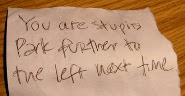 You are stupid
Park further to
the left next time